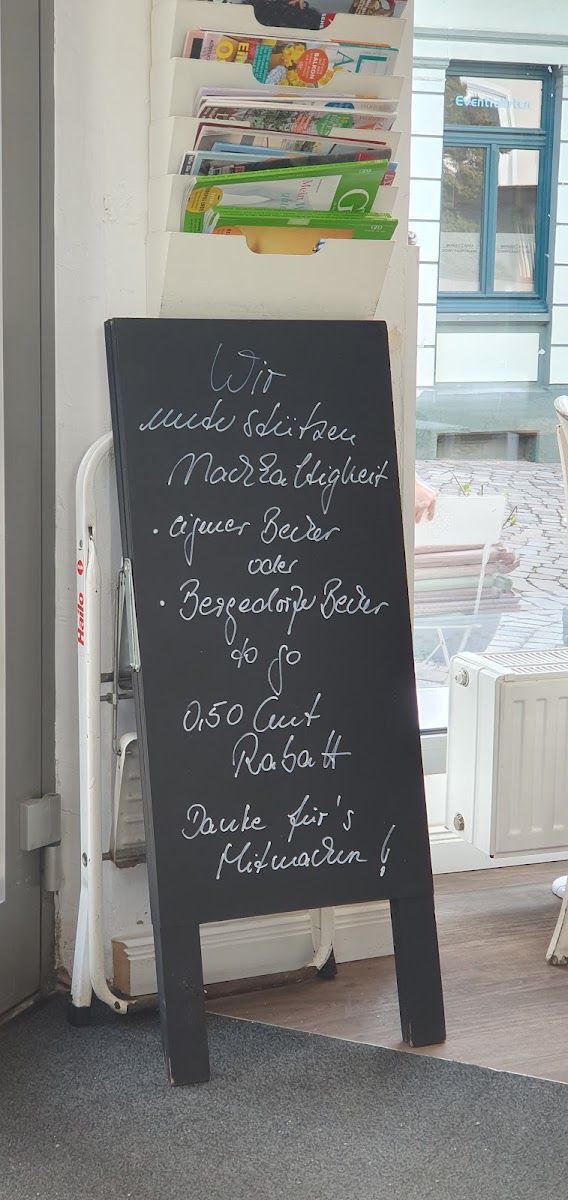 Eventgarten
Hailo
Wir
unterstützen
Nachhaltigkeit
• eigener Becher
oder
• Bergedorfer Becher
to go
0,50 Cent
Rabatt
Danke für's
Mitmachen!